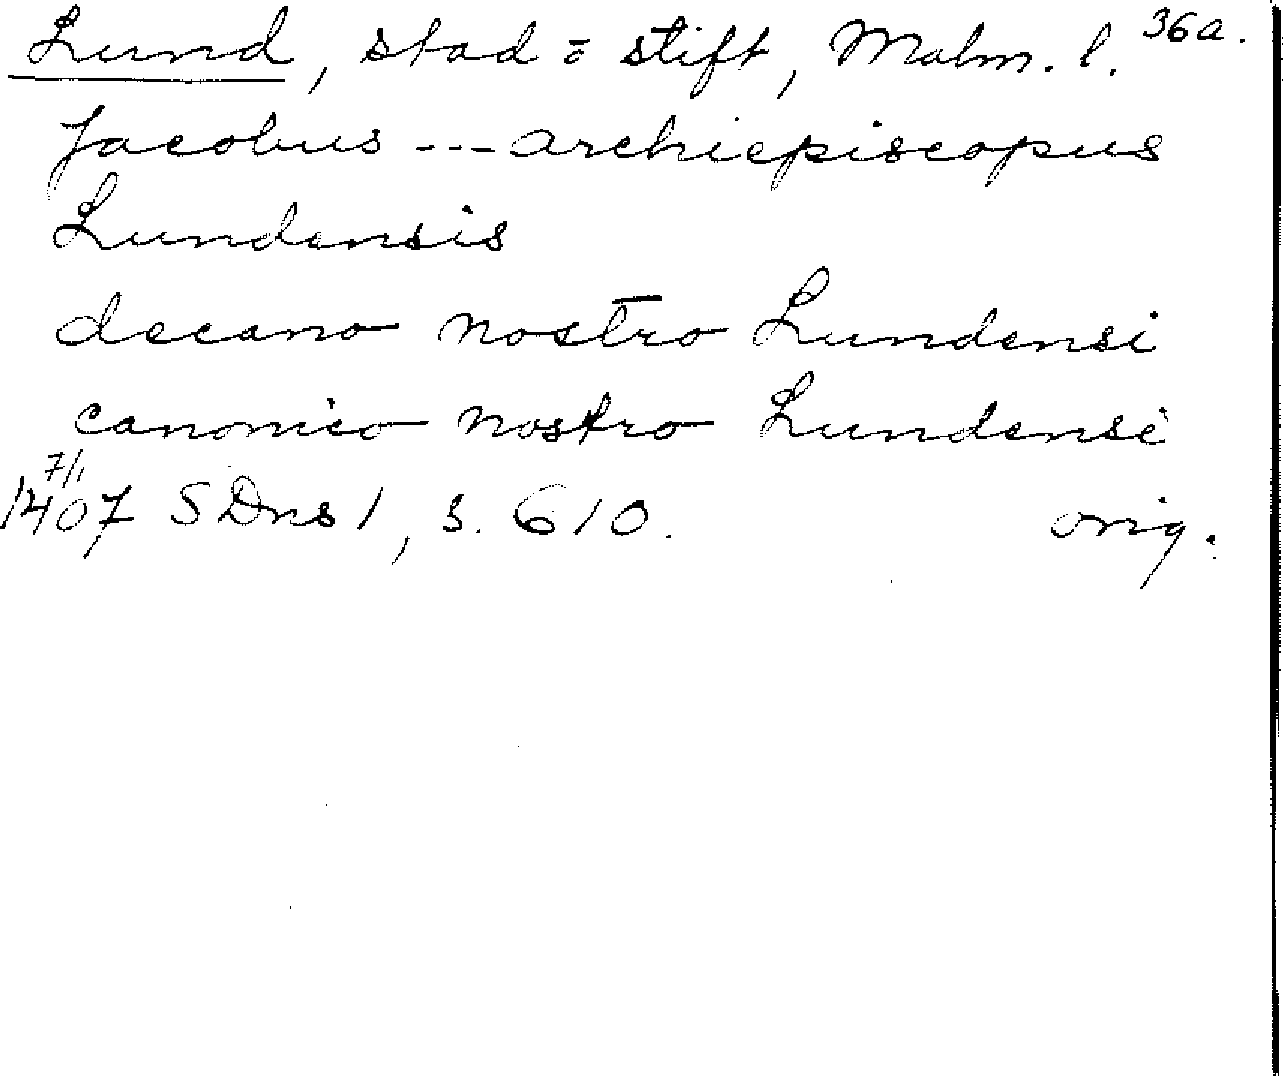 Lund, stad o stift, Malm. l. 36a.
Jacobus --- archiepiscopus
Lundensis
decano nostro Lundensi
canonico nostro Lundensi
7/1
1407 SDns 1, s. 610. orig.